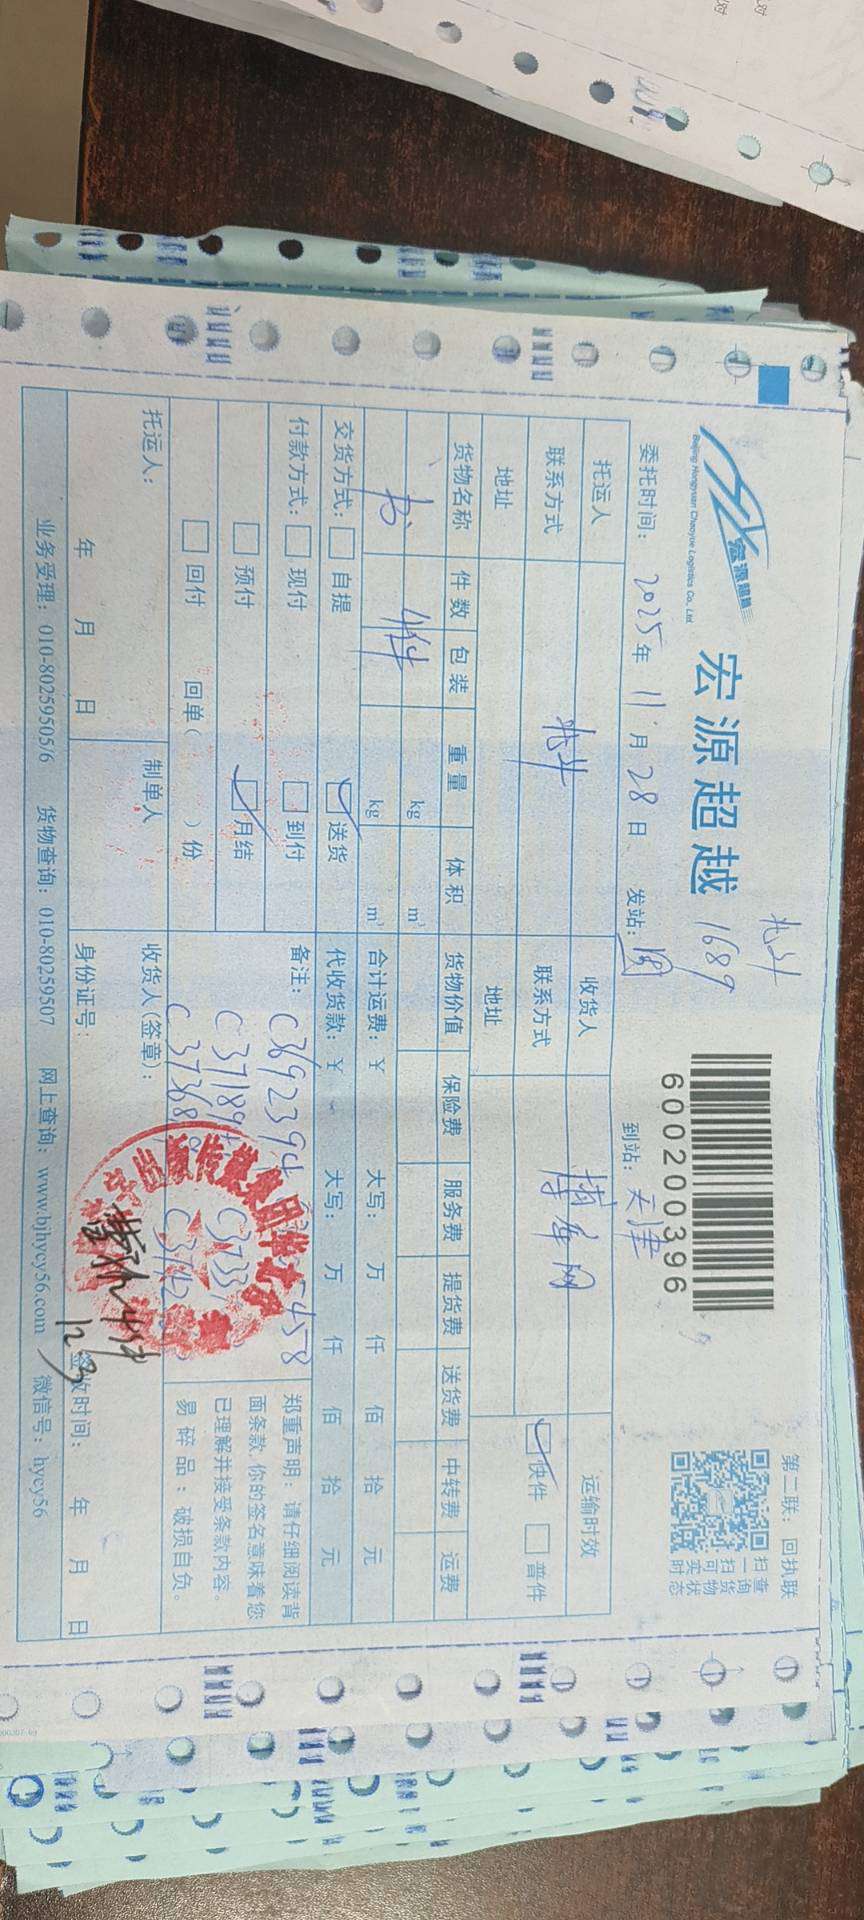 宏源超越
Beijing Hongyuan Chaoyue Logistics Co., Ltd
宏源超越 1689
600200396
第二联：回执联
扫一扫可实时
查询货物状态
委托时间：2025年11月28日 发站： 到站：天津
托运人 收货人 博库网 运输时效
联系方式 联系方式 快件 普件
地址 地址
货物名称 件数 包装 重量 体积 货物价值 保险费 服务费 提货费 送货费 中转费 运费
kg m³
书 4件 kg m³ 合计运费：¥ 大写： 万 仟 佰 拾 元
交货方式： 自提 送货 代收货款：¥ 大写： 万 仟 佰 拾 元
付款方式： 现付 到付 备注：C3692394
预付 月结
回付 回单（ ）份
郑重声明：请仔细阅读背
面条款,你的签名意味着您
已理解并接受条款内容。
易碎品：破损自负。
托运人： 制单人 收货人(签章)：
年 月 日 身份证号： 签收时间： 年 月 日
业务受理：010-80259505/6 货物查询：010-80259507 网上查询：www.bjhycy56.com 微信号：hycy56